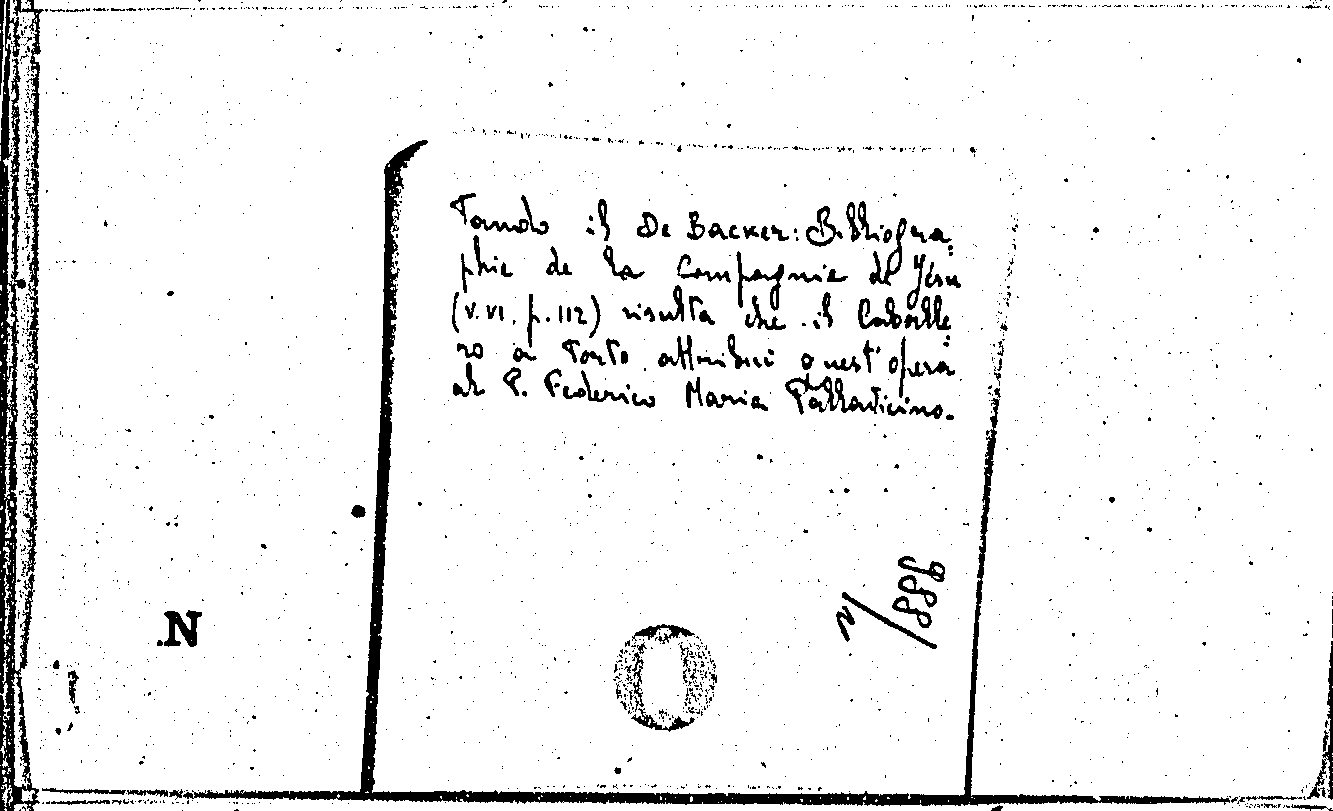 il De Backer: Bibliogra:
phie de la Compagnie de Jésu
(v. VI. p. 112) risulta che il Caballe:
ro a torto attribuì quest'opera
al P. Federico Maria Pallavicino.
.N